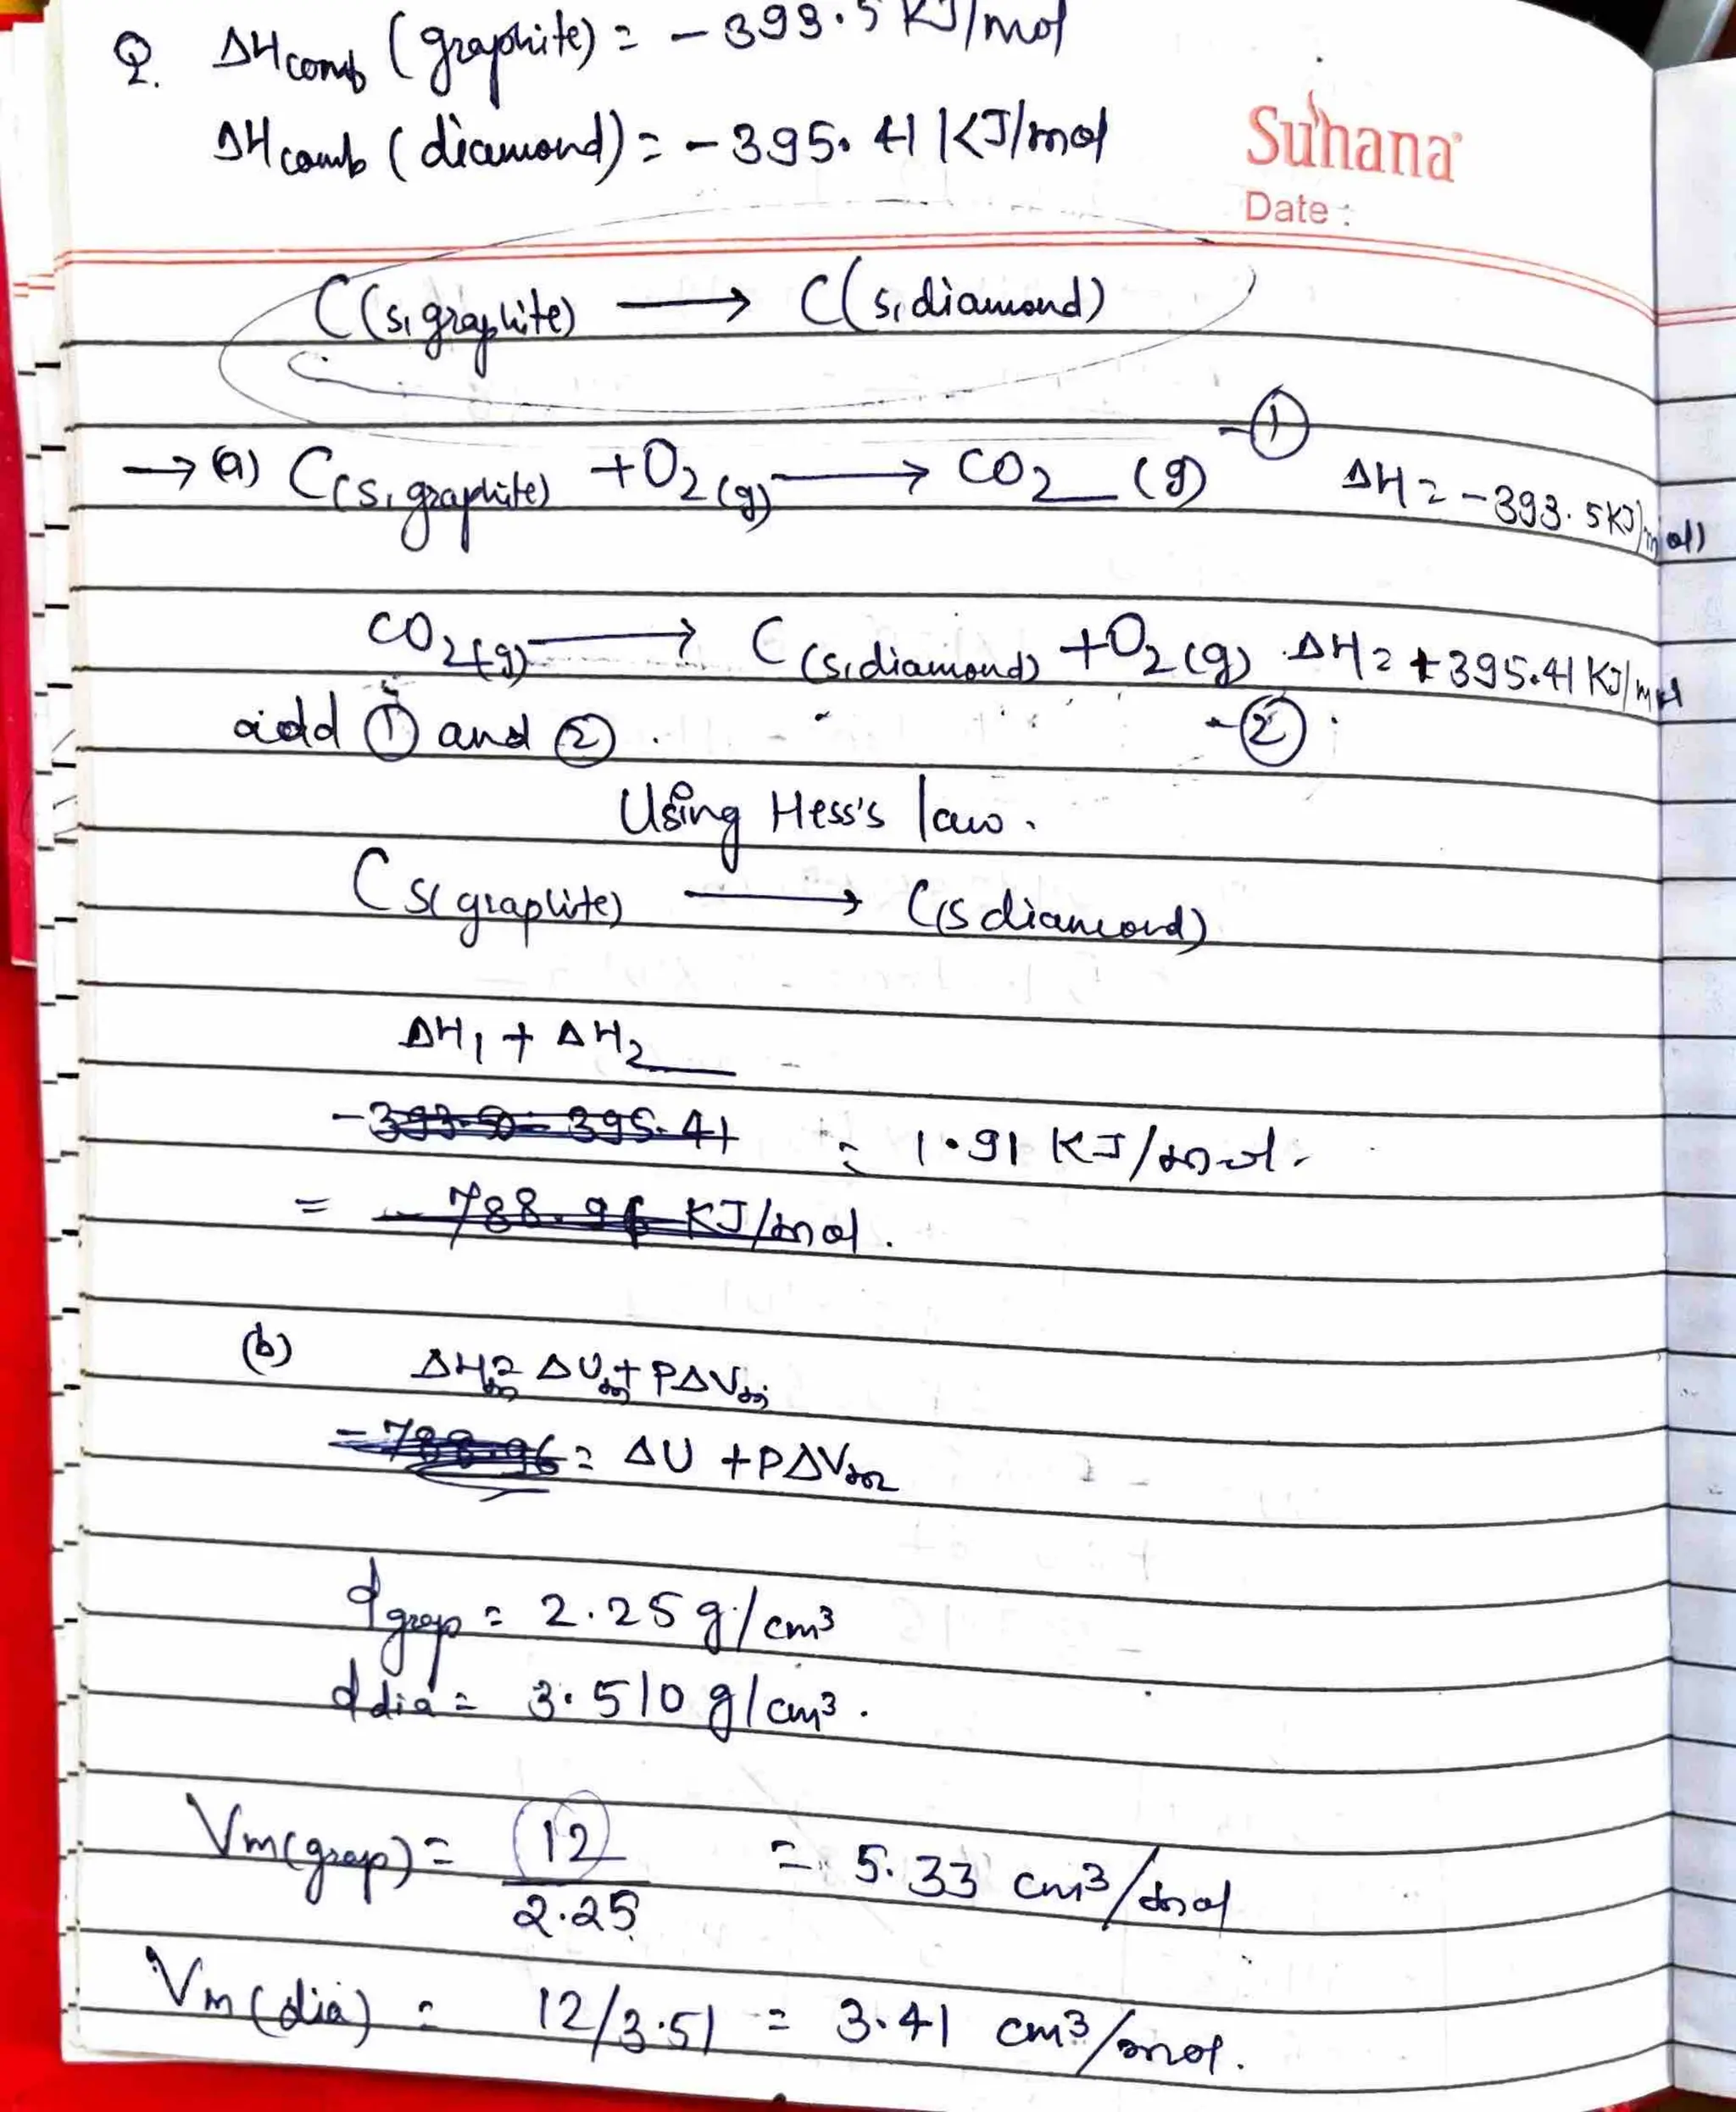 Q. ΔHcomb (graphite) = -393.5 KJ/mol
ΔHcomb (diamond) = -395.41 KJ/mol
Suhana
Date :
C(s, graphite) ⟶ C(s, diamond)
-①
→ (a) C(s, graphite) + O2(g) ⟶ CO2 (g) ΔH = -393.5 KJ/mol)
CO2(g) ⟶ C(s, diamond) + O2(g) ΔH = +395.41 KJ/mol
add ① and ②. -②
Using Hess's law.
C s(graphite) ⟶ C(s diamond)
ΔH1 + ΔH2
-393.50 - 395.41 = 1.91 KJ/mol.
= -788.91 KJ/mol.
(b) ΔHm = ΔUm + PΔVm
-788.96 = ΔU + PΔVm
dgrap = 2.25 g/cm³
ddia = 3.510 g/cm³.
Vm(grap) = 12/2.25 = 5.33 cm³/mol
Vm(dia) = 12/3.51 = 3.41 cm³/mol.